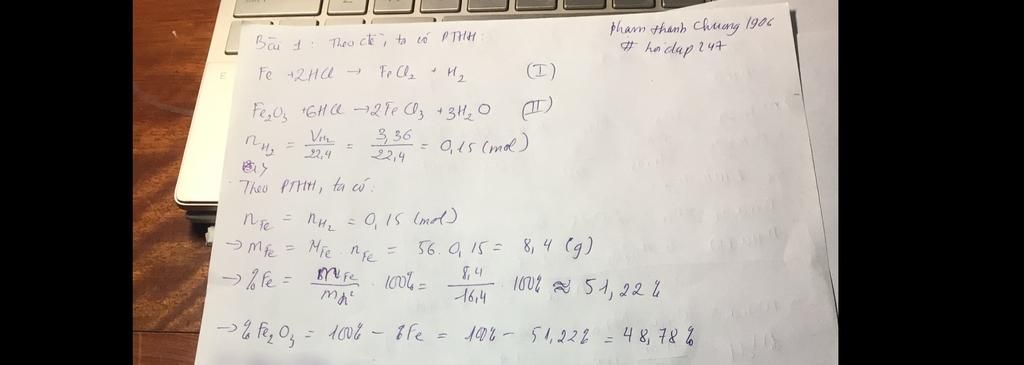 Bài 1 : Theo đề, ta có PTHH:
pham thanh Chuong 1906
# hoidap247
Fe + 2HCl → FeCl₂ + H₂ (I)
Fe₂O₃ + 6HCl → 2FeCl₃ + 3H₂O (II)
n_H₂ = V_H₂/22,4 = 3,36/22,4 = 0,15 (mol)
Theo PTHH, ta có:
n_Fe = n_H₂ = 0,15 (mol)
→ m_Fe = M_Fe . n_Fe = 56 . 0,15 = 8,4 (g)
→ %Fe = m_Fe/m_h² . 100% = 8,4/16,4 . 100% ≈ 51,22%
→ %Fe₂O₃ = 100% - %Fe = 100% - 51,22% = 48,78%